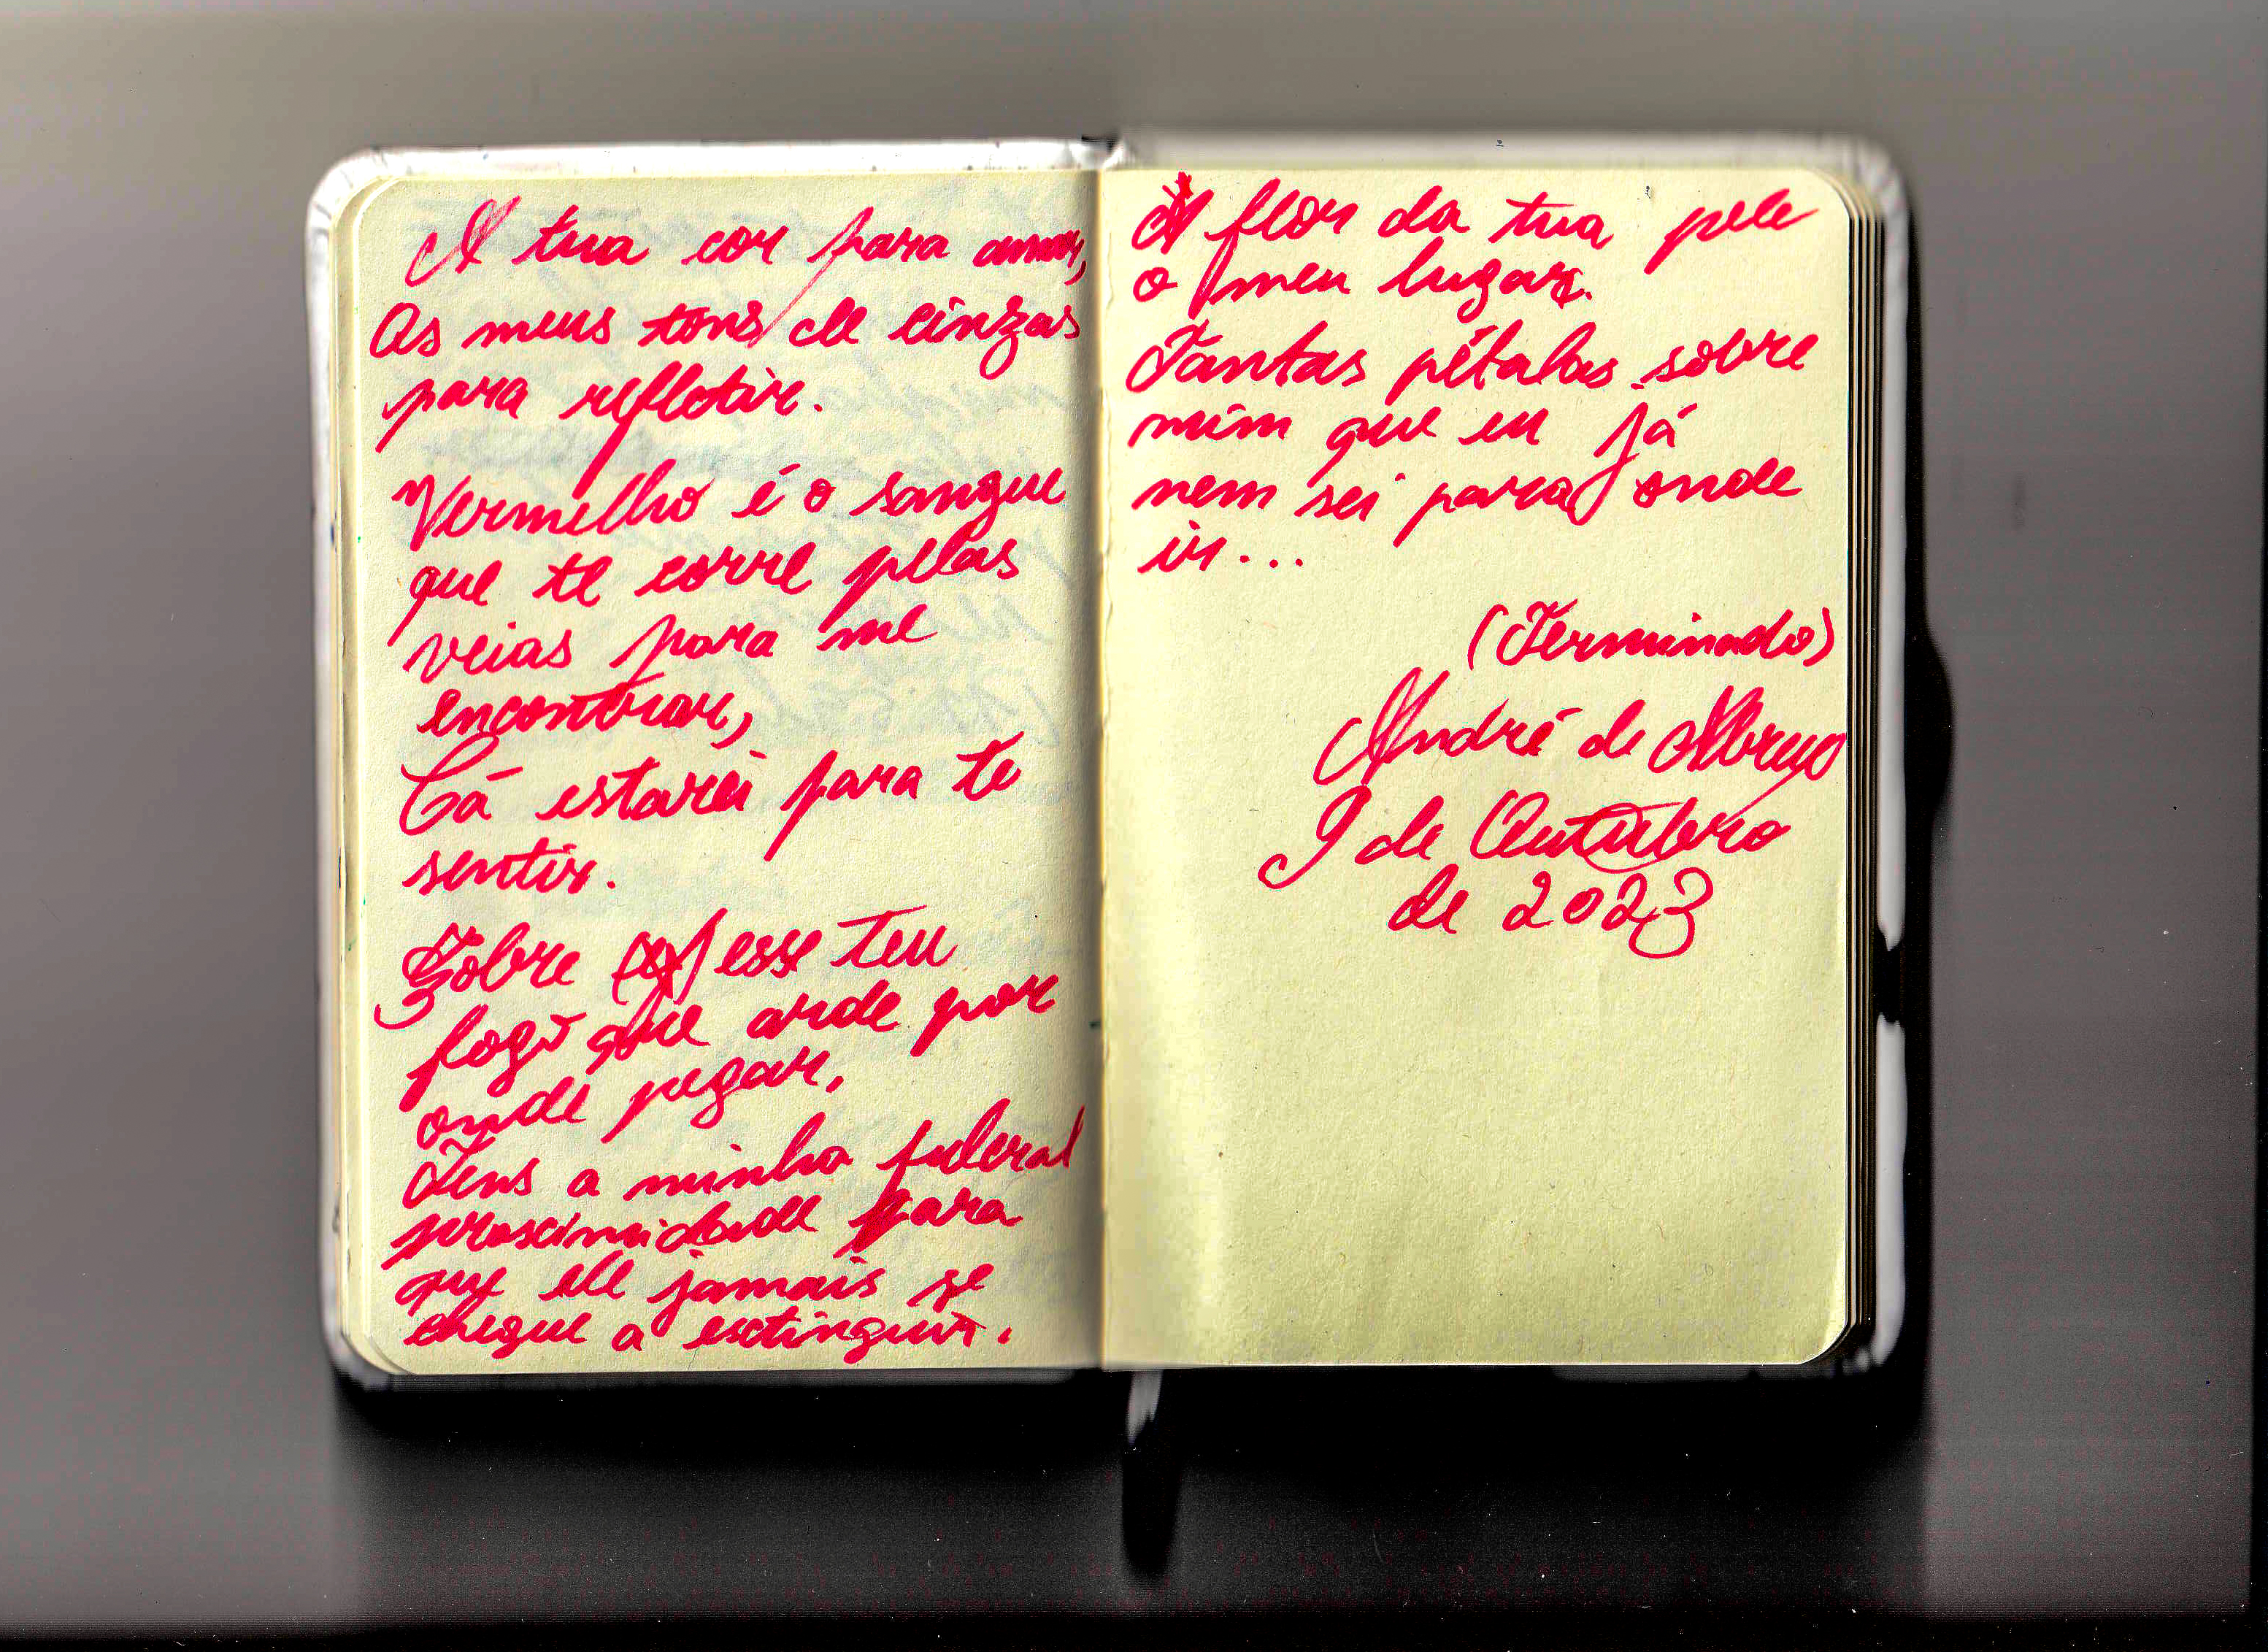 A tua cor para amar,
Os meus tons de cinzas
para refletir.
Vermelho é o sangue
que te corre pelas
veias para me
encontrar,
Cá estarei para te
sentir.
Sobre esse teu
fogo que arde por
onde pegar,
Tens a minha
proximidade para
que ele jamais se
chegue a extinguir.
À flor da tua pele
o meu lugar.
Tantas pétalas sobre
mim que eu já
nem sei para onde
ir...
(Terminado)
André de Abreu
9 de Outubro
de 2023